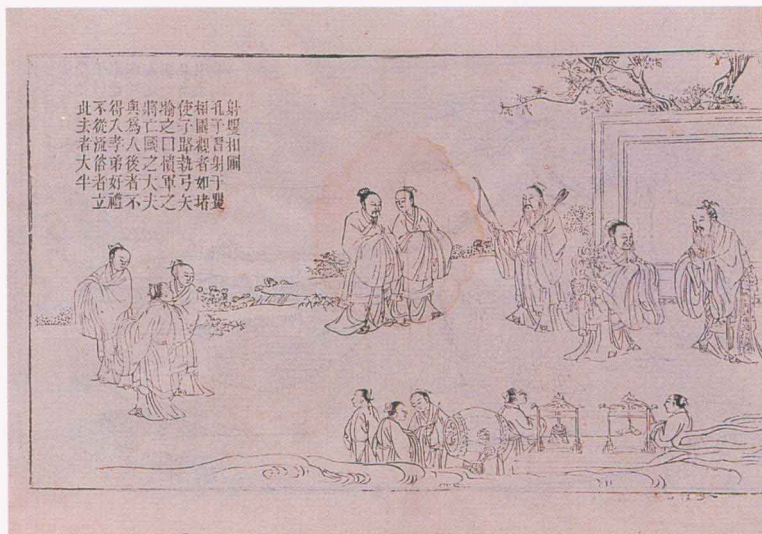 射矍相圃
孔子習射于矍
相圃觀者如堵
使子路執弓矢
喻之曰僨軍之
將亡國之大夫
與為人後者不
得入孝弟好禮
不從流俗者立
此去者大半